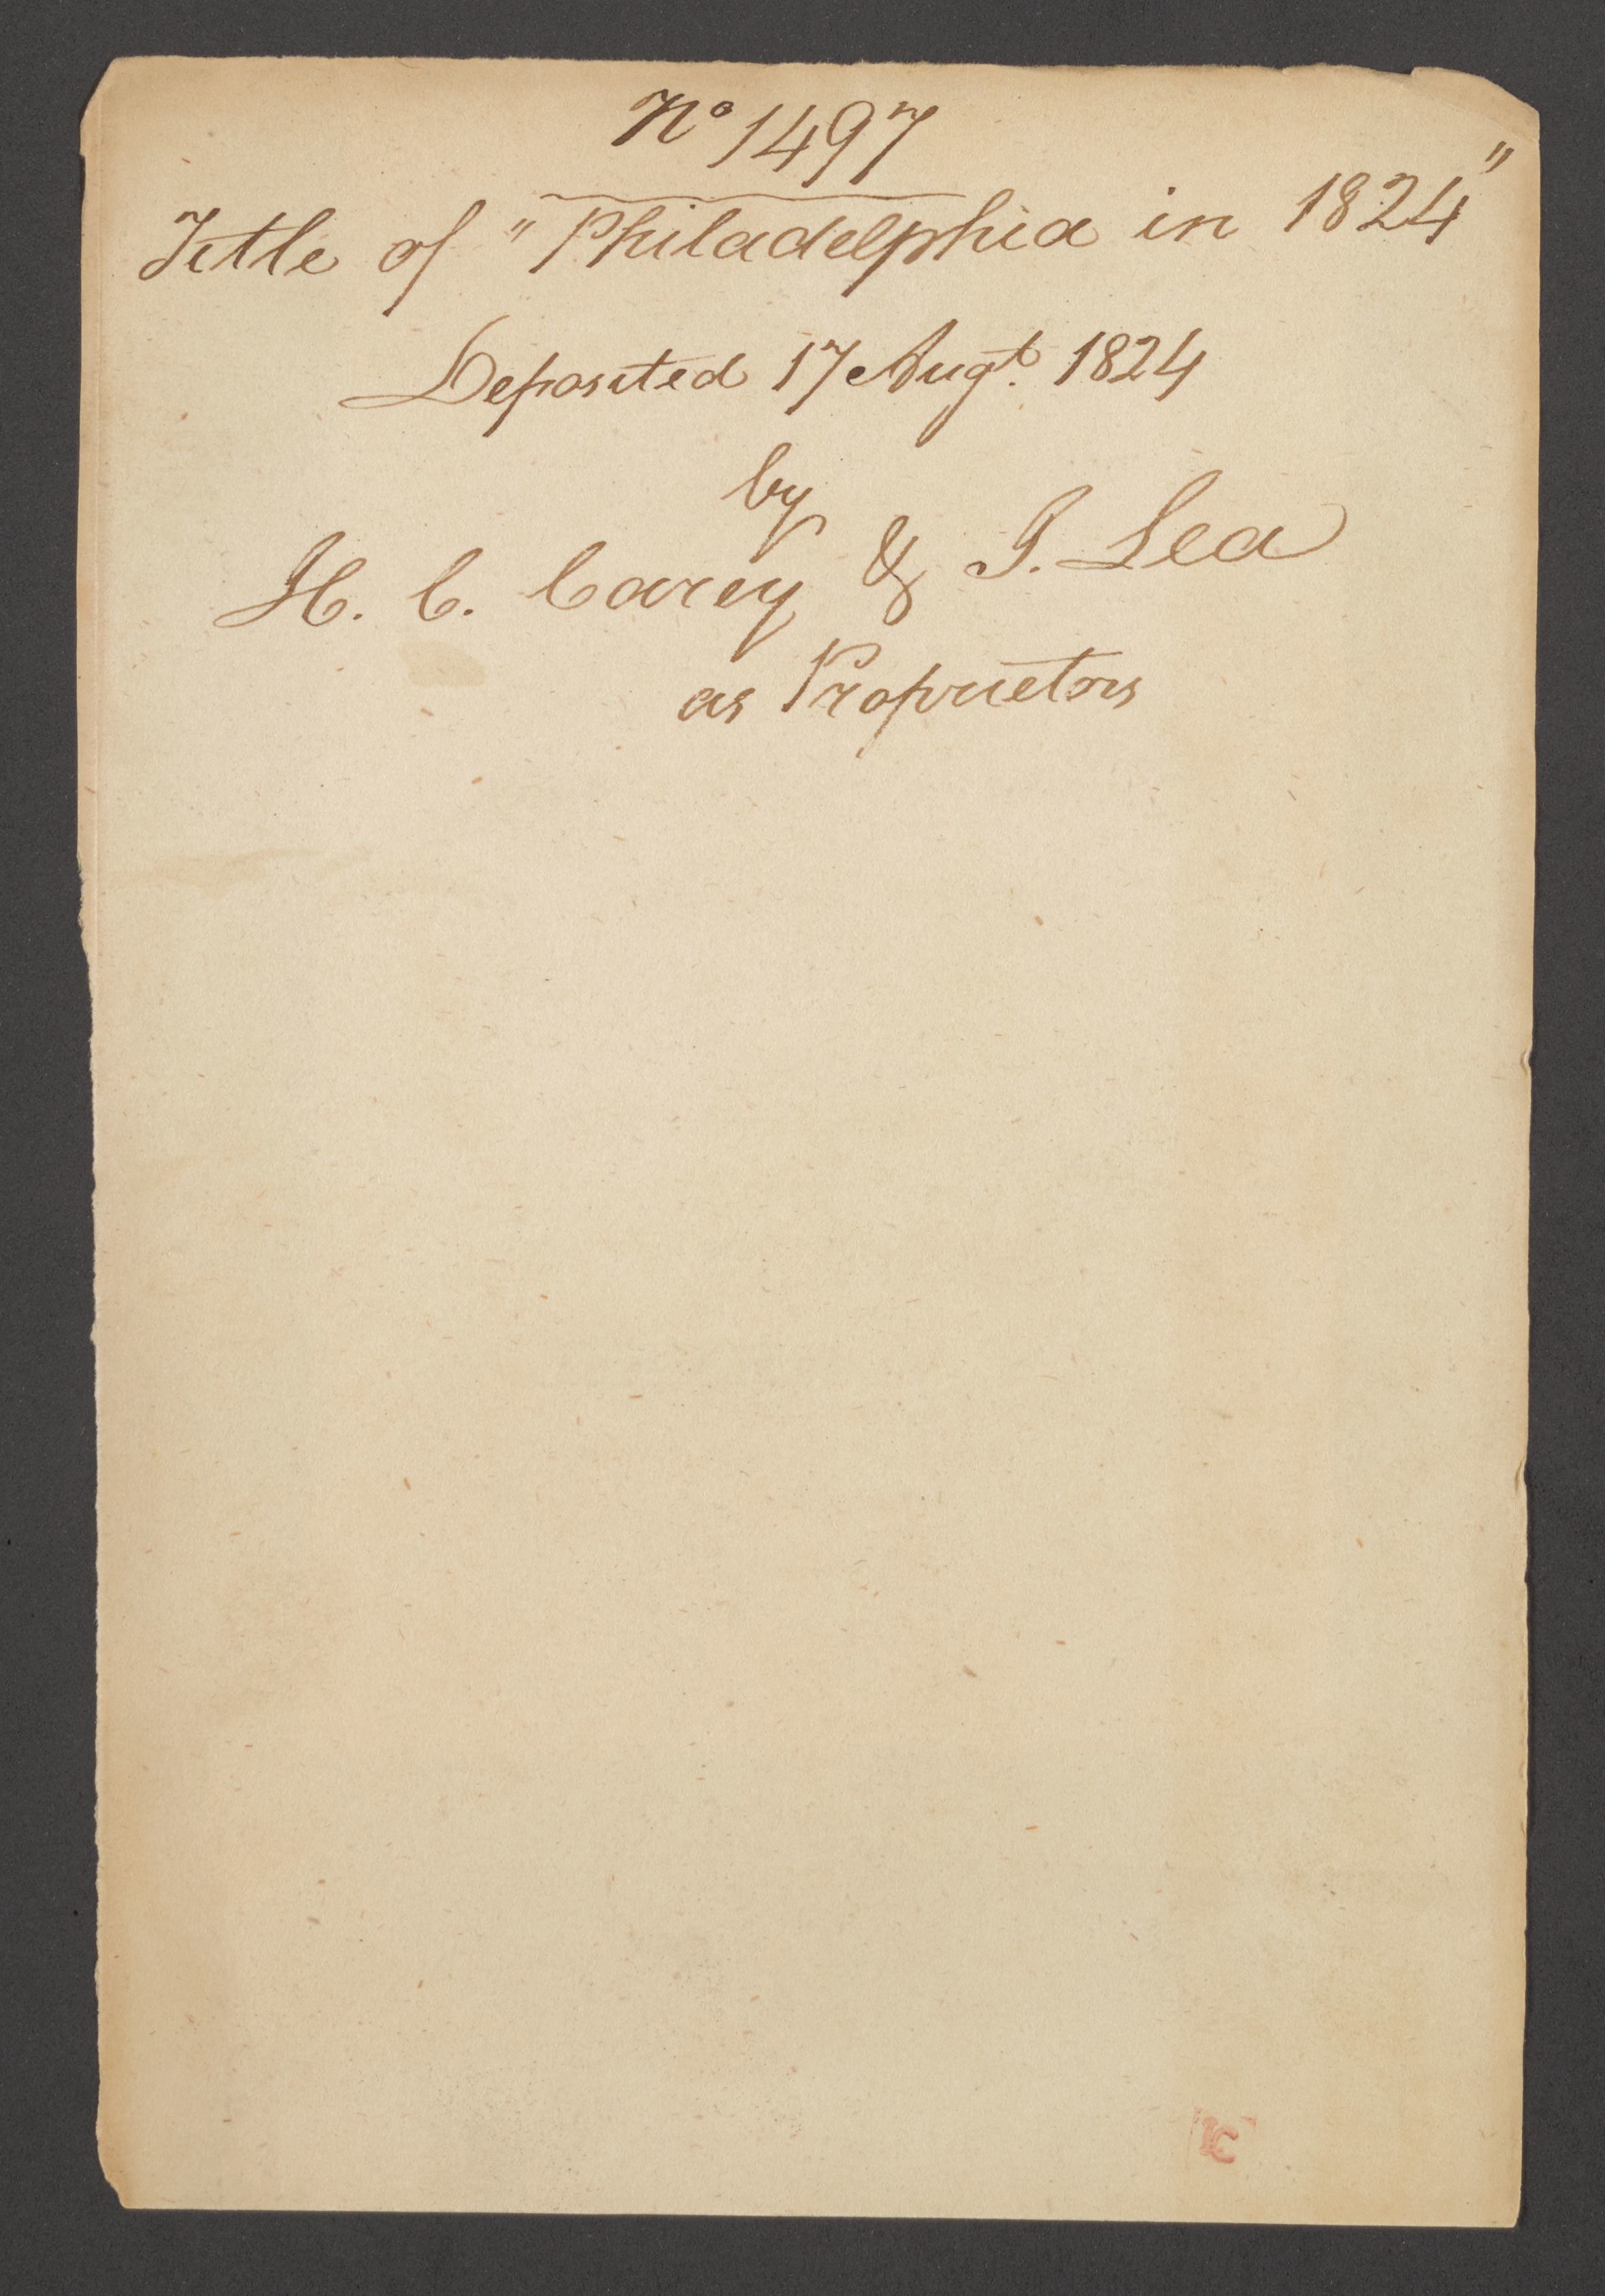 No 1497
Title of "Philadelphia in 1824"
Deposited 17 Augt. 1824
by
H. C. Carey & I. Lea
as Proprietors